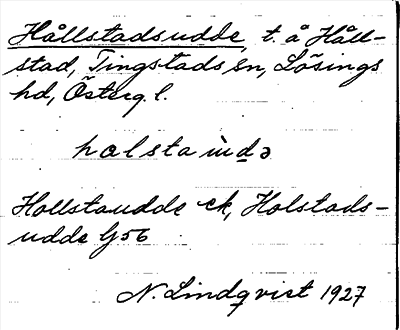 Hållstadsudde, t. å Håll-
stad, Tingstads sn, Lösings
hd, Österg. l.
halstaùdə
Hollstaudde ek, Holstads-
udde G56
N. Lindqvist 1927